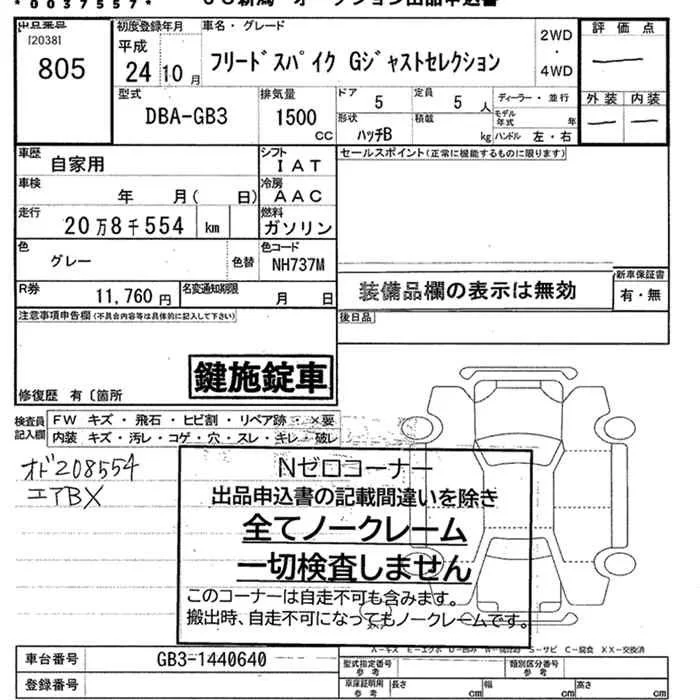 *0037557*
出品番号
[2038]
805
初度登録年月
平成
24年10月
車名・グレード
フリードスパイク Gジャストセレクション
2WD
・
4WD
評価点
―
外装 内装
― ―
型式
DBA-GB3
排気量
1500
CC
ドア
5
定員
5人
形状
ハッチB
積載
kg
ディーラー・並行
モデル年式 年
ハンドル 左・右
車歴
自家用
シフト
IAT
車検
年 月( 日)
冷房
AAC
走行
20万8千554 km
燃料
ガソリン
色
グレー
色替
色コード
NH737M
R券
11,760円
名変通知期限
月 日
セールスポイント(正常に機能するものに限ります)
装備品欄の表示は無効
新車保証書
有・無
注意事項申告欄(不具合内容等は具体的に記入して下さい)
後日品
鍵施錠車
修復歴 有〔箇所
検査員記入欄
FW キズ・飛石・ヒビ割・リペア跡・×要
内装 キズ・汚レ・コゲ・穴・スレ・キレ・破レ
オド208554
エアBX
Nゼロコーナー
出品申込書の記載間違いを除き
全てノークレーム
一切検査しません
このコーナーは自走不可も含みます。
搬出時、自走不可になってもノークレームです。
S-サビ C-腐食 XX-交換済
車台番号
GB3-1440640
登録番号
型式指定番号
参考
類別区分番号
参考
車庫証明用
参考
長さ cm
幅 cm
高さ cm